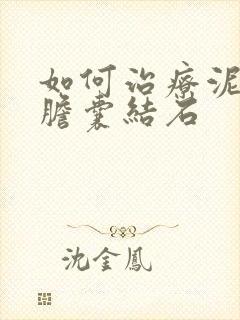 如何治療泥
膽囊結石
沈金鳳